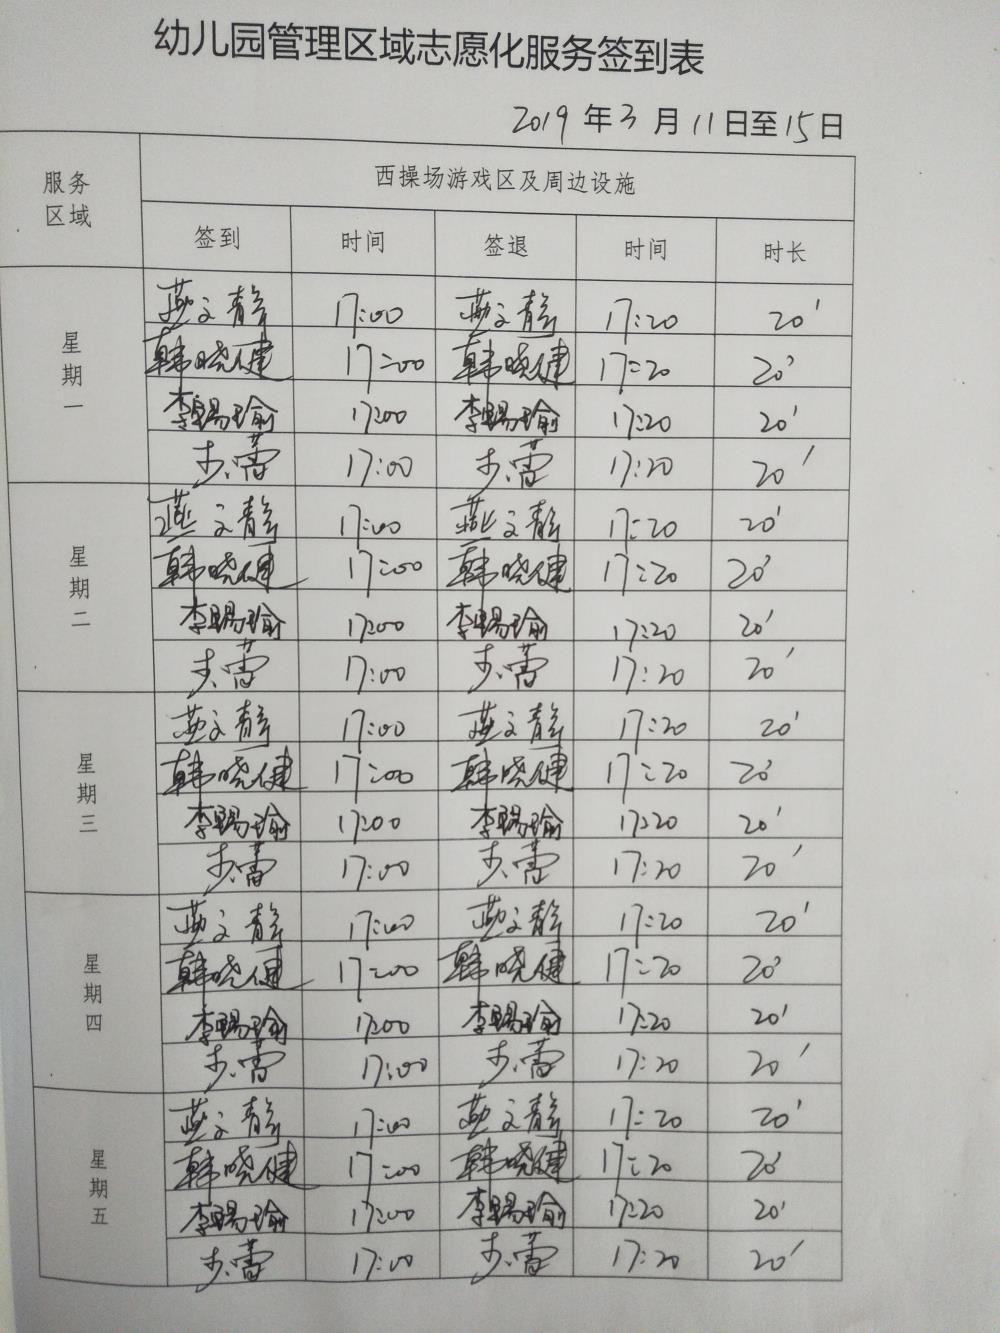 幼儿园管理区域志愿化服务签到表
2019年3月11日至15日
服务区域 西操场游戏区及周边设施
签到 时间 签退 时间 时长
星期一
燕文静 17:00 燕文静 17:20 20'
韩晓健 17:00 韩晓健 17:20 20'
李赐瑜 17:00 李赐瑜 17:20 20'
步蕾 17:00 步蕾 17:20 20'
星期二
燕文静 17:00 燕文静 17:20 20'
韩晓健 17:00 韩晓健 17:20 20'
李赐瑜 17:00 李赐瑜 17:20 20'
步蕾 17:00 步蕾 17:20 20'
星期三
燕文静 17:00 燕文静 17:20 20'
韩晓健 17:00 韩晓健 17:20 20'
李赐瑜 17:00 李赐瑜 17:20 20'
步蕾 17:00 步蕾 17:20 20'
星期四
燕文静 17:00 燕文静 17:20 20'
韩晓健 17:00 韩晓健 17:20 20'
李赐瑜 17:00 李赐瑜 17:20 20'
步蕾 17:00 步蕾 17:20 20'
星期五
燕文静 17:00 燕文静 17:20 20'
韩晓健 17:00 韩晓健 17:20 20'
李赐瑜 17:00 李赐瑜 17:20 20'
步蕾 17:00 步蕾 17:20 20'